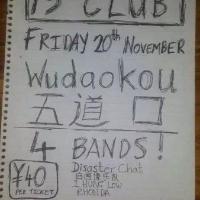 13 CLUB
FRIDAY 20th NOVEMBER
Wudaokou
五道口
4
BANDS!
¥40
PER TICKET
Disaster Chat
I HUNG LOW
RHONDDA